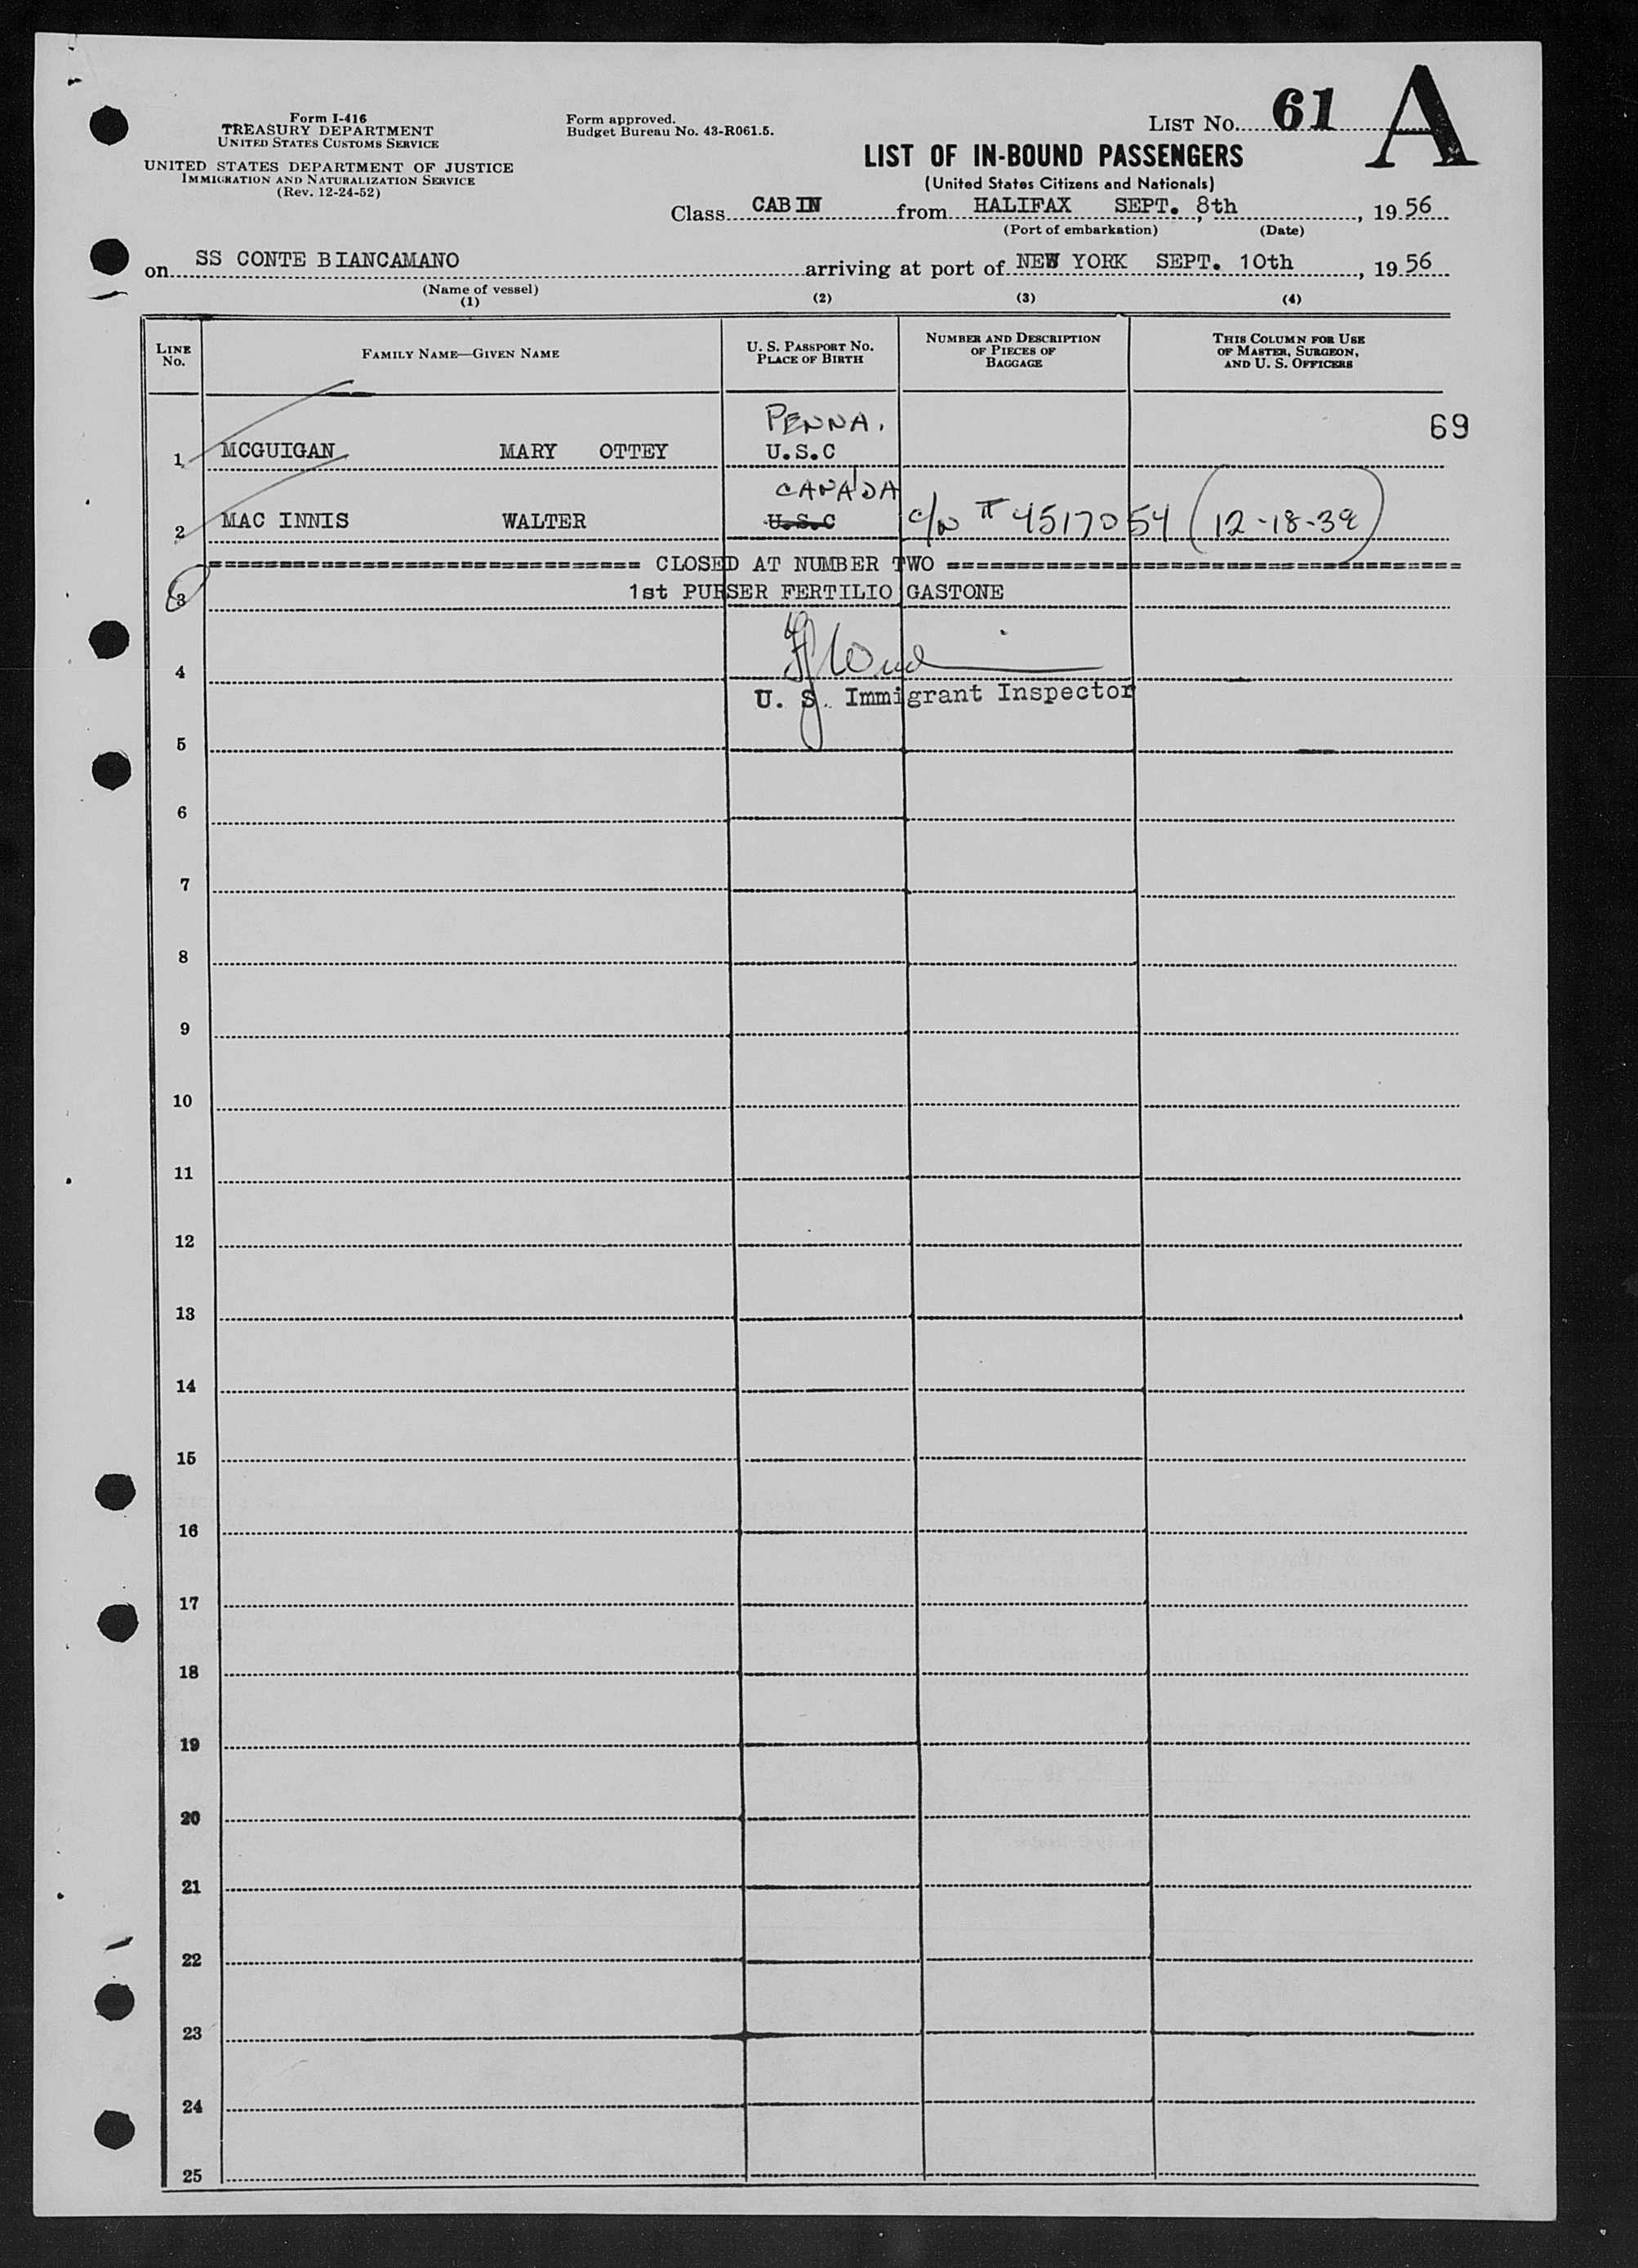 Form I-416
TREASURY DEPARTMENT
UNITED STATES CUSTOMS SERVICE
UNITED STATES DEPARTMENT OF JUSTICE
IMMIGRATION AND NATURALIZATION SERVICE
(Rev. 12-24-52)
Form approved.
Budget Bureau No. 43-R061.5.
LIST No. 61 A
LIST OF IN-BOUND PASSENGERS
(United States Citizens and Nationals)
Class CABIN from HALIFAX SEPT. 8th, 1956
(Port of embarkation) (Date)
on SS CONTE BIANCAMANO arriving at port of NEW YORK SEPT. 10th, 1956
(Name of vessel)
(1) (2) (3) (4)
LINE No.
FAMILY NAME—GIVEN NAME
U. S. PASSPORT No.
PLACE OF BIRTH
NUMBER AND DESCRIPTION
OF PIECES OF
BAGGAGE
THIS COLUMN FOR USE
OF MASTER, SURGEON,
AND U. S. OFFICERS
PENNA. 69
1 MCGUIGAN MARY OTTEY U.S.C
CANADA
2 MAC INNIS WALTER U.S.C c/n # 4517054 (12-18-39)
============================== CLOSED AT NUMBER TWO ====================================
3 1st PURSER FERTILIO GASTONE
4
U. S. Immigrant Inspector
5
6
7
8
9
10
11
12
13
14
15
16
17
18
19
20
21
22
23
24
25